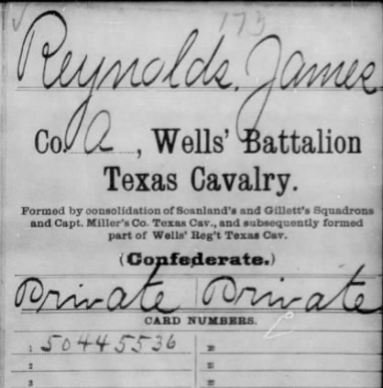 173
Reynolds, James
Co. A, Wells' Battalion
Texas Cavalry.
Formed by consolidation of Scanland's and Gillett's Squadrons
and Capt. Miller's Co. Texas Cav., and subsequently formed
part of Wells' Reg't Texas Cav.
(Confederate.)
Private Private
CARD NUMBERS.
1 50445536 20
2 21
3 22